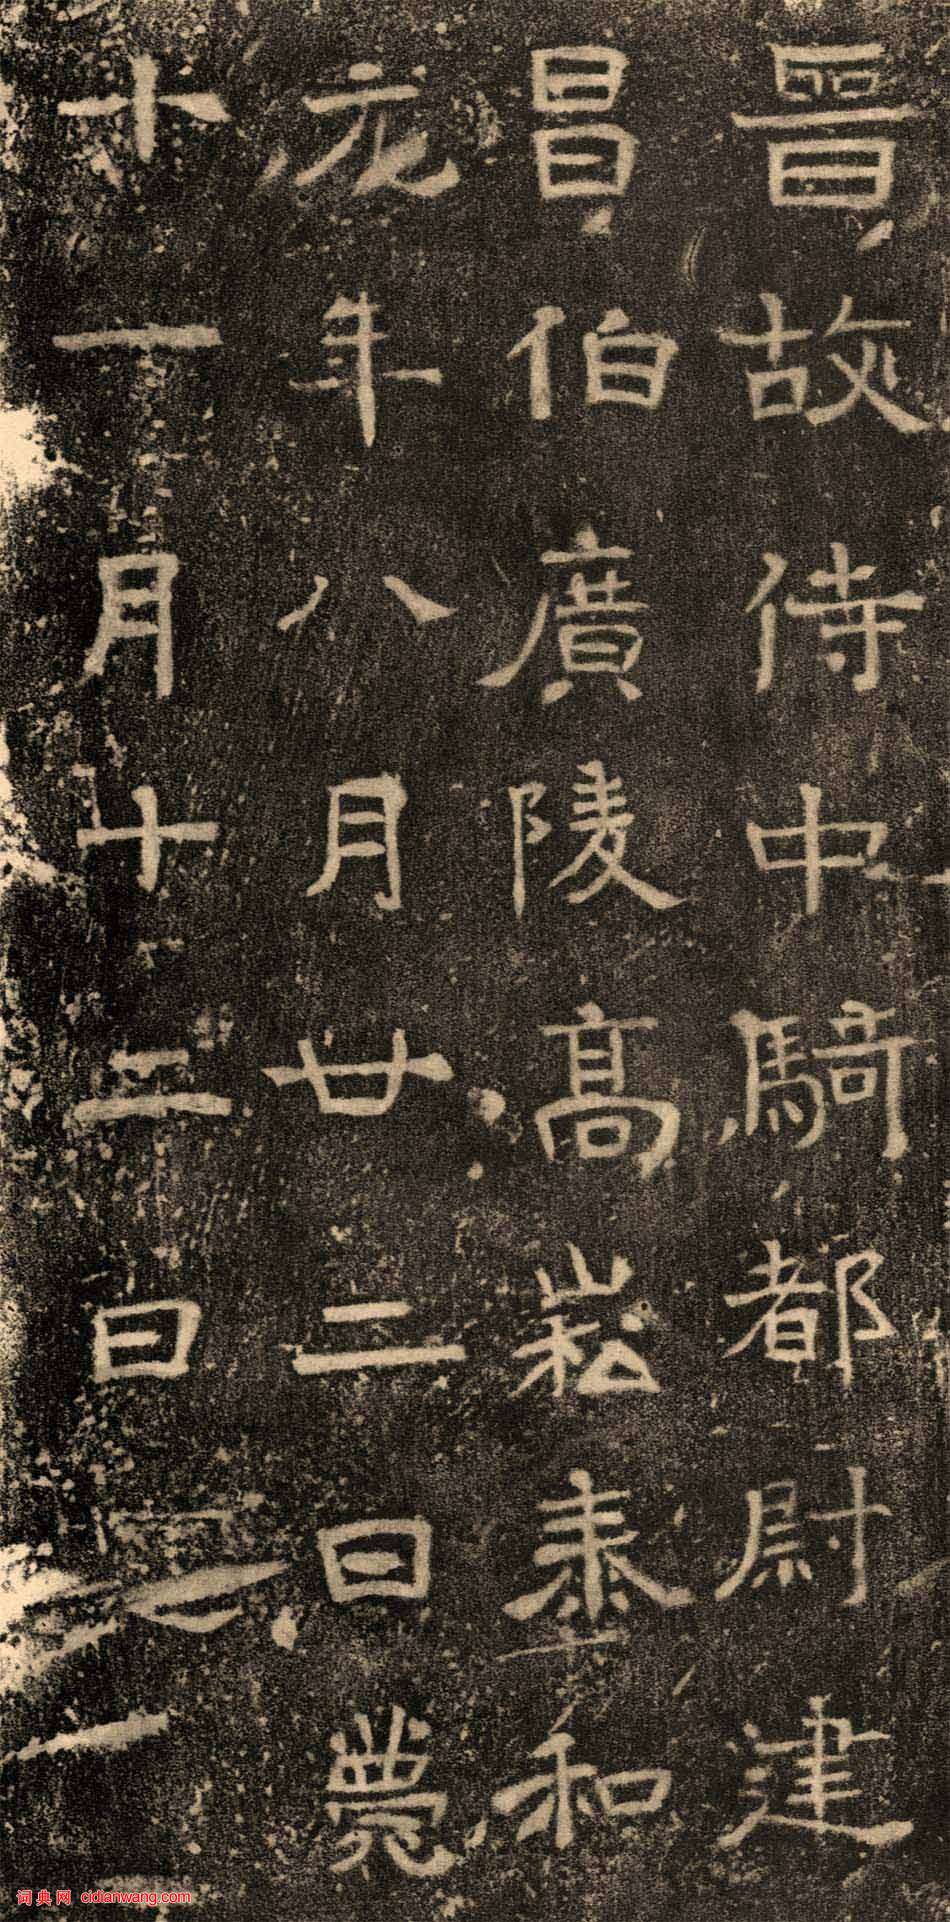 晉故侍中騎都尉建
昌伯廣陵高崧泰和
元年八月廿二日薨
十一月十二日
词典网 cidianwang.com